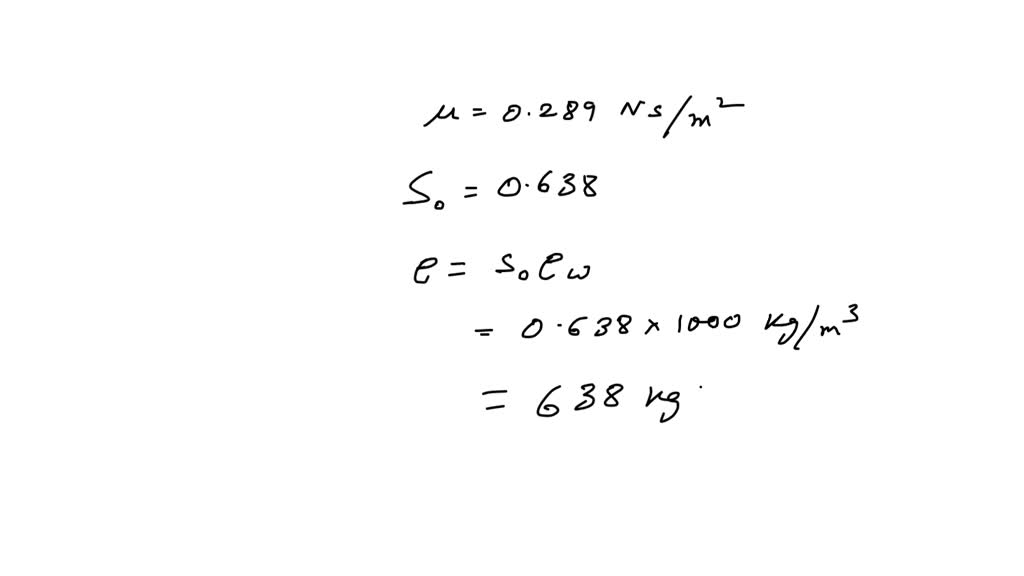 μ = 0.289 Ns/m²
S₀ = 0.638
ρ = S₀ρω
= 0.638 × 1000 kg/m³
= 638 kg